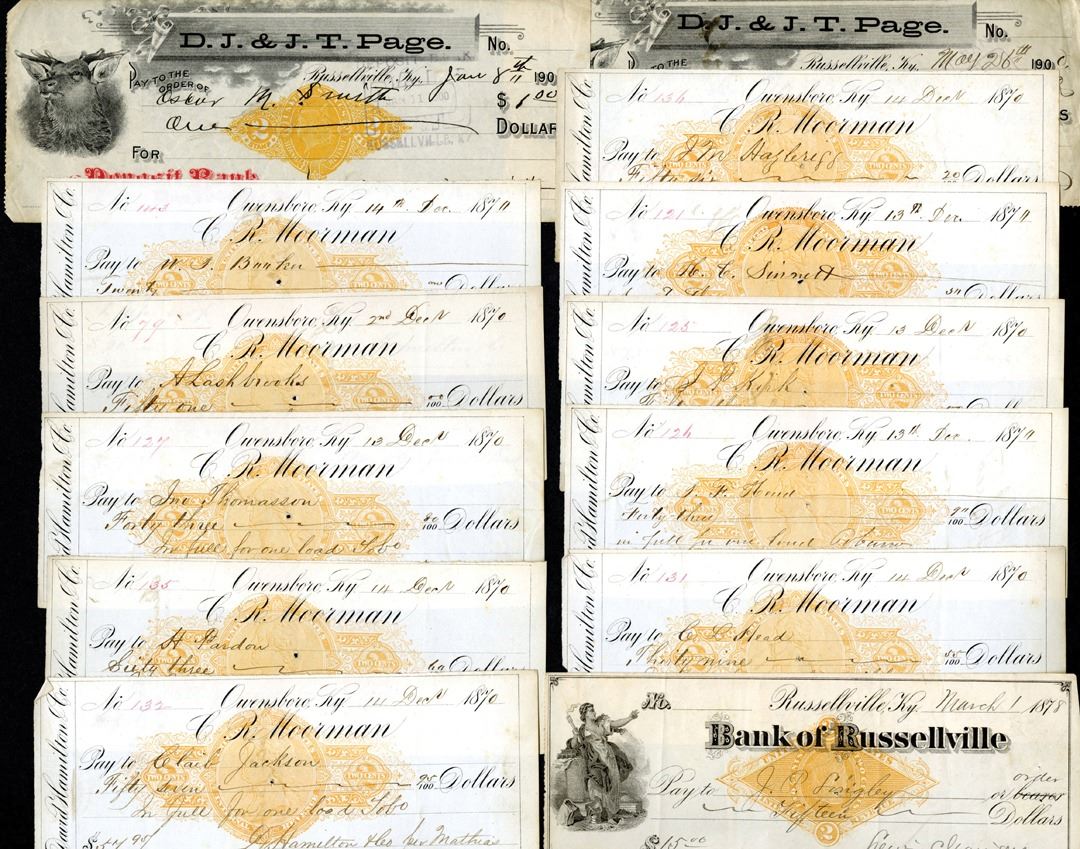 D. J. & J. T. Page.
No.
Russellville, Ky. Jan 8th 190
PAY TO THE
ORDER OF
Oscar M. Smith $ 1.00
One DOLLAR
2 2
FOR
Deposit Bank
D. J. & J. T. Page.
No.
Russellville, Ky. May 26th 190
TO THE
No 143 Owensboro, Ky 14th Dec. 1870
C. R. Moorman
Pay to
Twenty Dollars
Hamilton & Co.
No 79 Owensboro, Ky 2nd Dec 1870
C. R. Moorman
Pay to A Lashbrooks
Fifty one 00/100 Dollars
Hamilton & Co.
No 127 Owensboro, Ky 13 Dec 1870
C. R. Moorman
Pay to Jno Thomasson
Forty three 80/100 Dollars
In full for one load Tobo
d Hamilton & Co.
No 135 Owensboro, Ky 14 Dec 1870
C. R. Moorman
Pay to H Pardon
Sixty three 60 Dollars
Hamilton & Co.
No 132 Owensboro, Ky 14 Dec 1870
C. R. Moorman
Pay to Claib Jackson
Fifty seven 90/100 Dollars
TWO CENTS TWO CENTS
In full for one load Tobo
$57 90 D Hamilton & Co per Mathias
David Hamilton & Co.
No 136 Owensboro, Ky 14 Dec 1870
C. R. Moorman
Pay to J M Hazlerigg
Fifty six 20/100 Dollars
No 121 Owensboro, Ky 13th Dec. 1870
C. R. Moorman
Pay to H. C. Sinnett
Dollars
Hamilton & Co.
No 125 Owensboro, Ky 13 Dec 1870
C. R. Moorman
Pay to J. P. Kirk
Hamilton & Co.
No 126 Owensboro, Ky 13th Dec. 1870
C. R. Moorman
Pay to
Forty three /100 Dollars
in full for one load
d Hamilton & Co.
No 131 Owensboro, Ky 14 Dec 1870
C. R. Moorman
Pay to C L Head
Thirty nine 55/100 Dollars
Hamilton & Co.
No. Russellville, Ky. March 1 1878
Bank of Russellville
Pay to J. P. or bearer order
Fifteen Dollars
2
$15.00